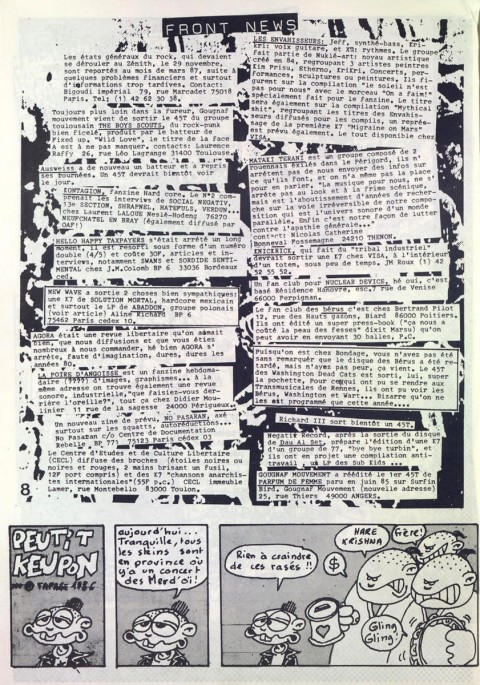 FRONT NEWS
Les états généraux du rock, qui devaient
se dérouler au Zénith, le 29 novembre
sont reportés au mois de mars 87, suite à
quelques problèmes financiers et surtout
d'informations trop tardives. Contact:
Bigoudi Impérial 79, rue Marcadet 75018
Paris, Tel: (1) 42 62 30 38.
Toujours plus loin dans la fureur, Gougnaf
mouvement vient de sortir le 45T du groupe
toulousain THE BOYS SCOUTS, du rock-punk
bien ficelé, produit par le batteur de
Fixed up. "Wild Love", le titre de la face
A est à ne pas manquer. contacts: Laurence
Raffy 26, rue Léo Lagrange 31400 Toulouse.
Ausweiss a de nouveau un batteur et a repris
les tournées. Un 45T devrait bientôt voir
le jour.
CONTAGION, fanzine Hard core. Le N°2 com-
prenait les interviews de SOCIAL NEGATIV,
13e SECTION, SHRAPNEL, RATEPULS, VERDUN...
chez Laurent LALOUE Neslé-Hodeng 76270
NEUFCHATEL EN BRAY (également diffusé par
OAF!)
HELLO HAPPY TAXPAYERS s'était arrêté un long
moment, il est ressorti sous forme d'un numéro
double (4/5) et coûte 30F, articles et in-
terviews, notamment SWANS et SORDIDE SENTI-
MENTAL chez J.M.Colomb BP 6 33036 Bordeaux
ced.
NEW WAVE a sortie 2 choses bien sympathiques:
une K7 de SOLUTION MORTAL, hardcore mexicain
et surtout le LP de ABADDON, groupe polonais
(voir article) Aline Richard BP 6
75462 Paris cedex 10.
AGORA était une revue libertaire qu'on aimait
bien, que nous diffusions et que vous étiez
nombreux à nous commander, hé bien AGORA s'
arrête, faute d'imagination, dures, dures les
années 80.
LA POIRE D'ANGOISSE est un fanzine hebdoma-
daire (????) d'images, graphismes... A la
même adresse on trouve également une revue
sonore, industrielle,"que faisiez-vous der-
rière l'oreille?", tout ça chez Didier Mou-
linier 11 rue de la sagesse 24000 Périgueux.
Un nouveau zine de prévu, NO PASARAN, axé
surtout sur les squatts, autoréductions...
No Pasaran c/o Centre de Documentation
Rebelle BP 77 75123 Paris cédex 03
Le Centre d'Etudes et de Culture Libertaire
(CECL) diffuse des broches (étoiles noires ou
noires et rouges, 2 mains brisant un fusil,
12F port compris) et des K7 "chansons anarchis-
tes internationales"(55F p.c.) CECL immeuble
Lamer, rue Montebello 83000 Toulon.
8
LES ENVAHISSEURS: Jeff, synthé-bass, Eri-
kri: voix guitare, et XR: rythmes. Le groupe
fait partie de Nukle-art: noyau artistique
créé en 84, regroupant 3 artistes peintres
Kim Prisu, Etherno, KriKri. Concerts, per-
formances, sculptures ou peintures, ils fi-
gurent sur la compilation "le soleil n'est
pas pour nous" avec le morceau "On a faim!"
spécialement fait pour le fanzine. Le titre
sera également sur la compilation "Mythical
shit", regroupant les titres des Envahis-
seurs diffusés pour les compils, un repres-
sage de la première K7 "Migraine on Mars"
est prévu également. Le tout disponible chez
VISA.
MATAKI TERANI est un groupe composé de 2
rouennais exilés dans le Périgord, ils n'
arrêtent pas de nous envoyer des infos sur
ce qu'ils font, et on n'a même pas la place
pour en parler. "La musique pour nous, ne s'
arrête pas au look et à la frime scénique,
mais est l'aboutissement d'années de recher-
che sur la voie irréversible de notre compo-
sition qui est l'univers sonore d'un monde
parallèle. Enfin c'est notre façon de lutter
contre l'apathie générale..."
contact: Nicolas Catherine
Bonneval Fossemagne 24210 THENON.
KNICKRICK, qui fait du "tribal industriel"
devrait sortir une K7 chez VISA, à l'intérieur
d'un totem, sous peu de temps. JM Roux (1) 42
52 55 52.
Un fan club pour NUCLEAR DEVICE, hé oui, c'est
basé Résidence Hanovre, esc.7 rue de Venise
66000 Perpignan.
Le fan club des bérus c'est chez Bertrand Pilot
12, rue des Hauts gazons, Biard 86000 Poitiers.
Ils ont édité un super press-book ("ça nous a
coûté la peau des fesses" dixit Marsu) qu'on
peut avoir en envoyant 30 balles, P.C.
Puisqu'on est chez Bondage, vous n'avez pas été
sans remarquer que le disque des Bérus a été re-
tardé, mais n'ayez pas peur, ça vient. Le 45T
des Washington Dead Cats est sorti, lui, super
la pochette, Pour ceux qui ont pu se rendre aux
Transmusicales de Rennes, ils ont pu voir les
Bérus, Washington et Wart... Bizarre qu'on ne
les ait programmé que cette année....
Richard III sort bientôt un 45T.
Negatif Record, après la sortie du disque
de Dau Al Set, prépare l'édition d'une K7
d'un groupe de 77, "bye bye turbin", et
ils ont en projet une compilation anti-
travail, un LP des Sub Kids ...
GOUGNAF MOUVEMENT a réédité le 1er 45T de
PARFUM DE FEMME paru en juin 85 sur Surfin
Bird. Gougnaf Mouvement (nouvelle adresse)
25, rue Thiers 49000 ANGERS.
PEUTIT
KEUPON
TAPAGE 1986
aujourd'hui...
Tranquille, tous
les skins sont
en province où
y'a un concert
des Merd'oi!
Rien à craindre
de ces rasés !!
$
HARE
KRISHNA
Frère!
Gling
Gling!